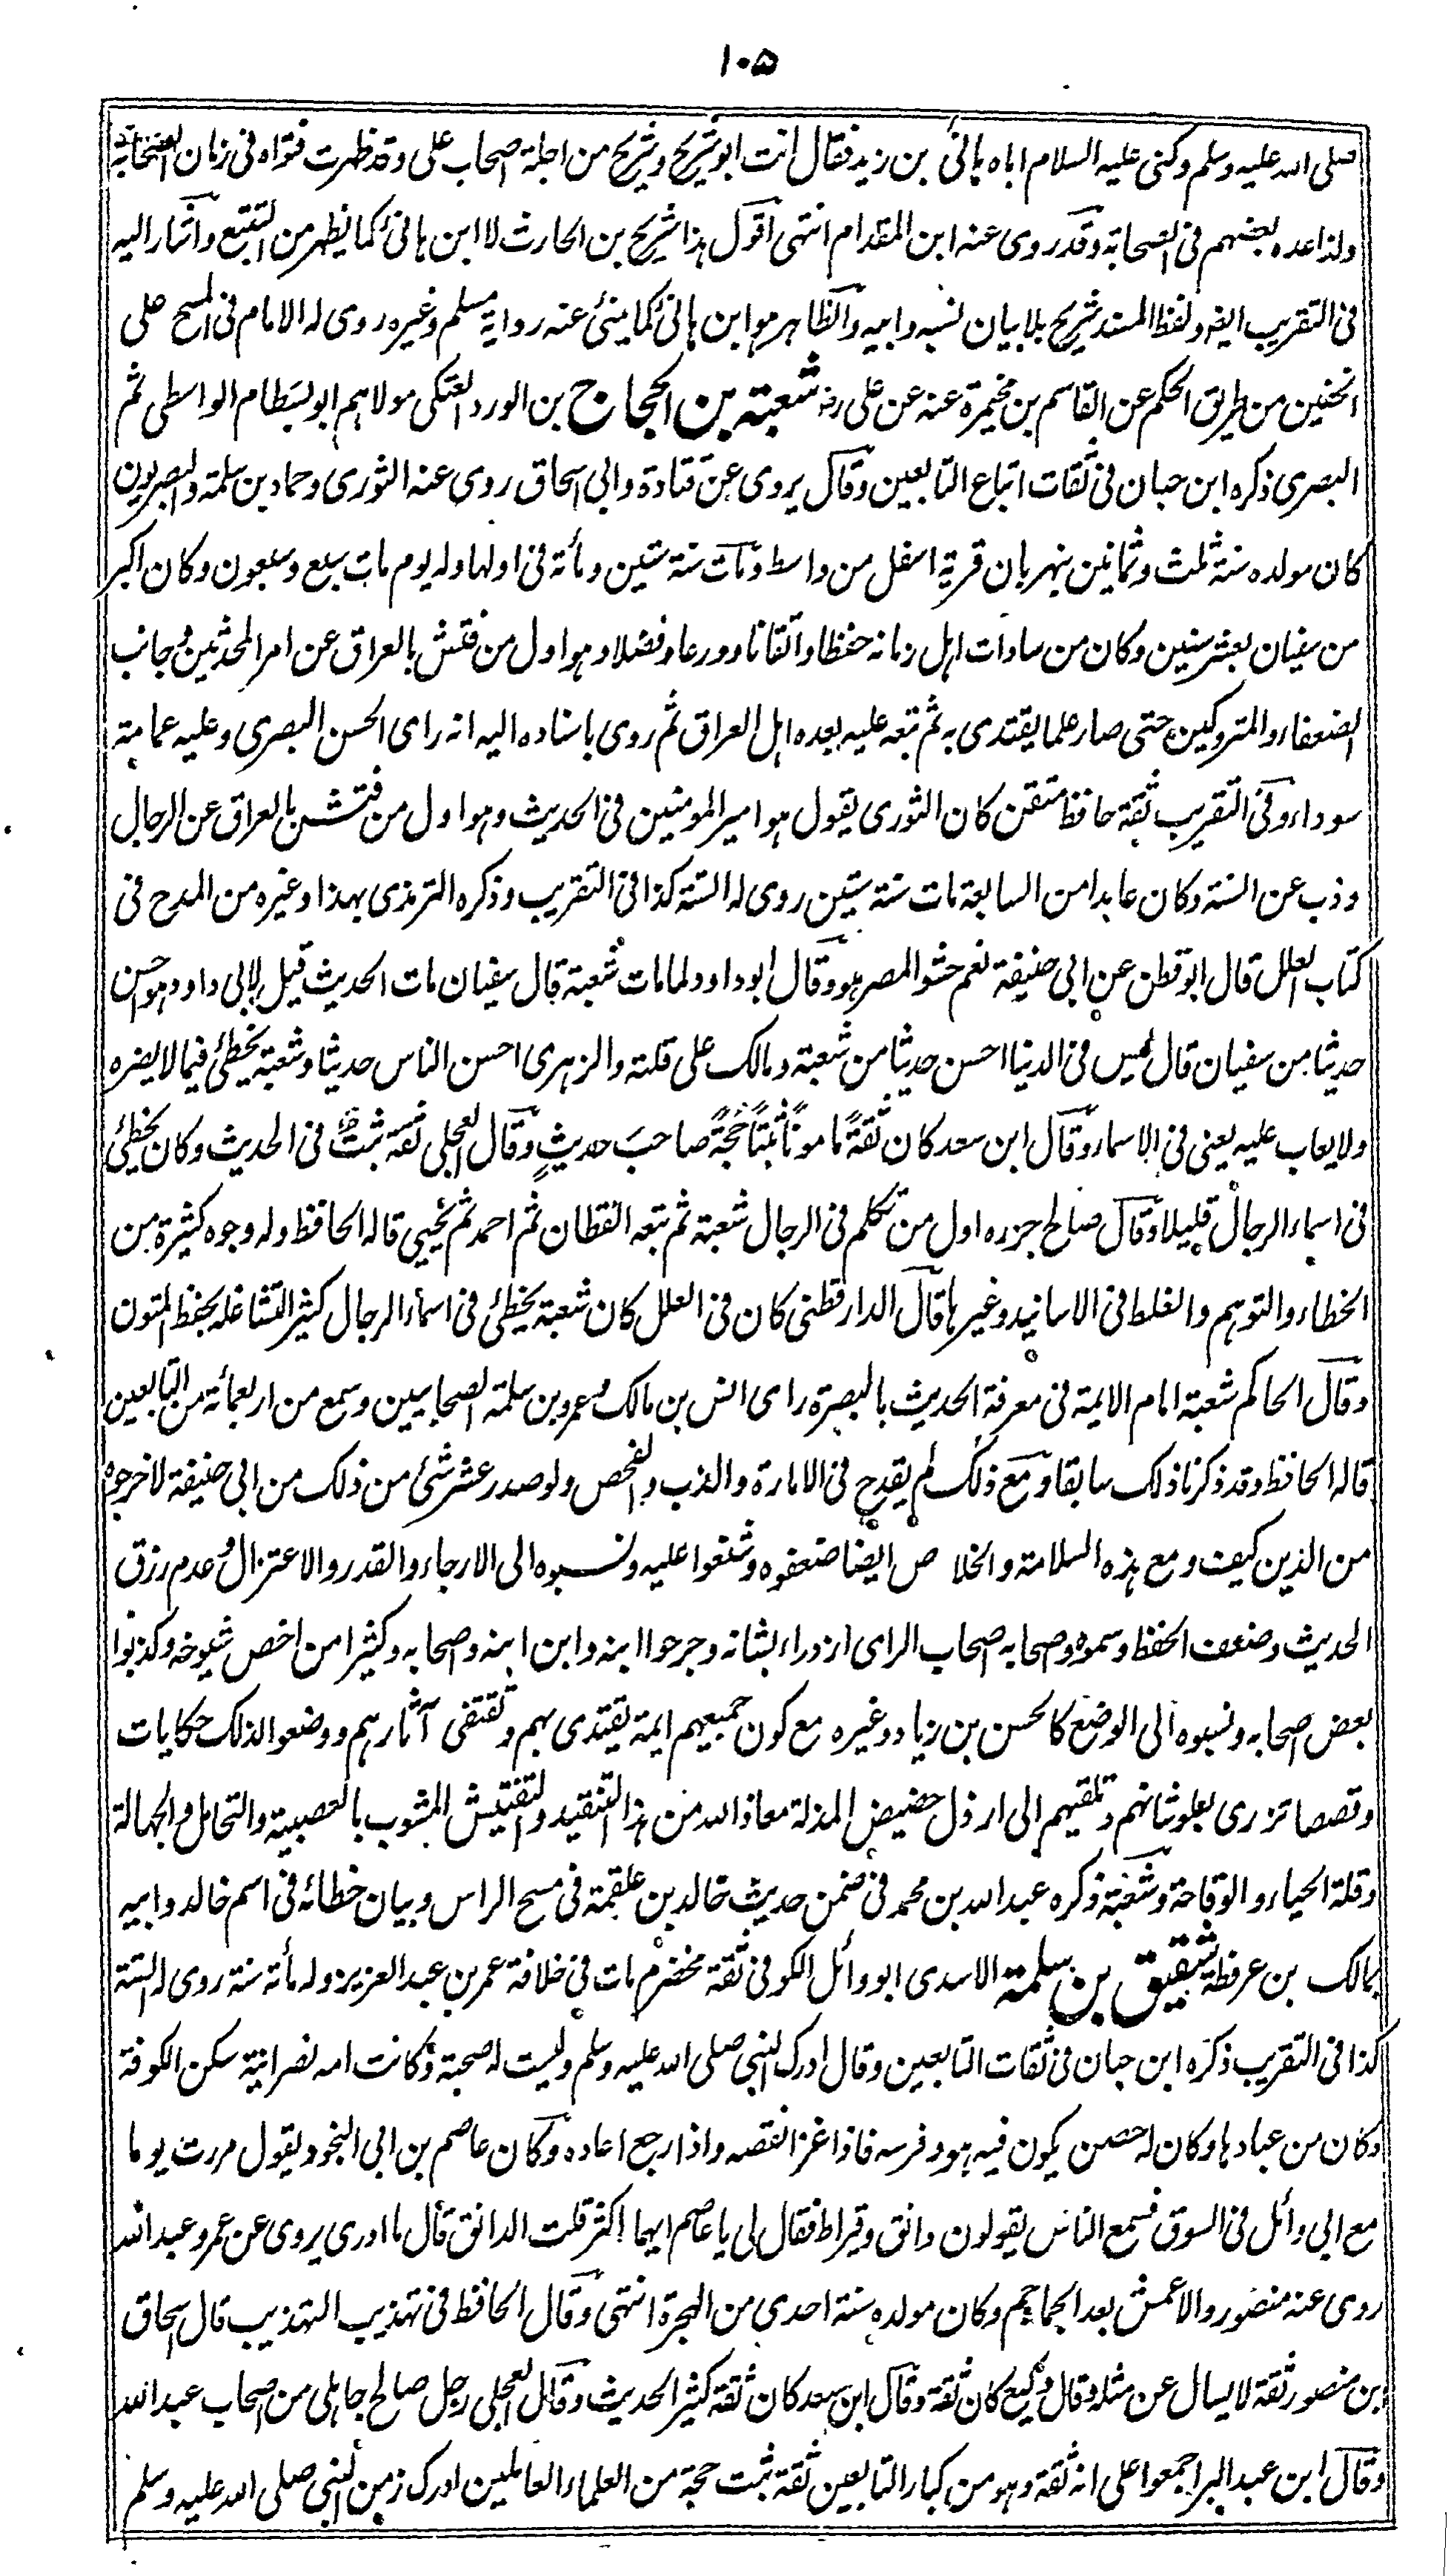 ١٠٥
صلى الله عليه وسلم وكنى عليه السلام اباه هانئ بن زيد فقال انت ابو شريح وشريح من اجلة اصحاب على وقد ظهرت فتواه فى زمان الصحابة
ولذا عده بعضهم فى الصحابة وقد روى عنه ابن المقدام انتهى اقول هذا شريح بن الحارث لا ابن هانئ كما يظهر من التتبع واشار اليه
فى التقريب ايضا ولفظ المسند شريح بلا بيان نسبه وابيه والظاهر هو ابن هانئ كما ينبئ عنه رواية مسلم وغيره روى له الامام فى المسح على
الخفين من طريق الحكم عن القاسم بن مخيمرة عنه عن على رض شعبة بن الحجاج بن الورد العتكى مولاهم ابو بسطام الواسطى ثم
البصرى ذكره ابن حبان فى ثقات اتباع التابعين وقال يروى عن قتادة وابى اسحاق روى عنه الثورى وحماد بن سلمة والبصريون
كان مولده سنة ثلث وثمانين بنهربان قرية اسفل من واسط ومات سنة ستين ومأته فى اولها وله يوم مات سبع وسبعون وكان اكبر
من سفيان بعشر سنين وكان من سادات اهل زمانه حفظا واتقانا وورعا وفضلا وهو اول من فتش بالعراق عن امر المحدثين وجانب
الضعفاء والمتروكين حتى صار علما يقتدى به ثم تبعه عليه بعده اهل العراق ثم روى باسناده اليه انه راى الحسن البصرى وعليه عمامة
سوداء وفى التقريب ثقة حافظ متقن كان الثورى يقول هو امير المومنين فى الحديث وهو اول من فتش بالعراق عن الرجال
وذب عن السنة وكان عابدا من السابعة مات سنة ستين روى له الستة كذا فى التقريب وذكره الترمذى بهذا وغيره من المدح فى
كتاب العلل قال ابو قطن عن ابى حنيفة نعم حشو المصر هو وقال ابو داود لما مات شعبة قال سفيان مات الحديث قيل لابى داود هو احسن
حديثا من سفيان قال ليس فى الدنيا احسن حديثا من شعبة ومالك على قلته والزهرى احسن الناس حديثا وشعبة يخطئ فيما لا يضره
ولا يعاب عليه يعنى فى الاسماء وقال ابن سعد كان ثقةً مامونًا ثبتًا حجةً صاحبَ حديثٍ وقال العجلى ثقة ثبت فى الحديث وكان يخطئ
فى اسماء الرجال قليلا وقال صالح جزره اول من تكلم فى الرجال شعبة ثم تبعه القطان ثم احمد ثم يحيى قاله الحافظ وله وجوه كثيرة من
الخطاء والتوهم والغلط فى الاسانيد وغيرها قال الدارقطنى كان فى العلل كان شعبة يخطئ فى اسماء الرجال كثيرا لتشاغله بحفظ المتون
وقال الحاكم شعبة امام الايمة فى معرفة الحديث بالبصرة راى انس بن مالك وعمرو بن سلمة الصحابيين وسمع من اربعمائة من التابعين
قاله الحافظ وقد ذكرنا ذلك سابقا ومع ذلك لم يقدح فى الامارة والذب والفحص ولو صدر عشر شئ من ذلك من ابى حنيفة لاخرجوه
من الدين كيف ومع هذه السلامة والخلاص ايضا ضعفوه وشنعوا عليه ونسبوه الى الارجاء والقدر والاعتزال وعدم رزق
الحديث وضعف الحفظ وسموه وصحابه اصحاب الراى ازدراء بشانه وجرحوا ابنه وابن ابنه وصحابه وكثيرا من اخص شيوخه وكذبوا
بعض اصحابه ونسبوه الى الوضع كالحسن بن زياد وغيره مع كون جميعهم ايمة يقتدى بهم وتقتفى آثارهم ووضعوا لذلك حكايات
وقصصا تزرى بعلو شانهم وتلقيهم الى ارذل حضيض المذلة معاذ الله من هذا التنقيد والتفتيش المشوب بالعصبية والتحامل والجهالة
وقلة الحياء والوقاحة وشعبة ذكره عبد الله بن محمد فى ضمن حديث خالد بن علقمة فى مسح الراس وبيان خطائه فى اسم خالد وابيه
بمالك بن عرفطة شقيق بن سلمة الاسدى ابو وائل الكوفى ثقة مخضرم مات فى خلافة عمر بن عبد العزيز وله مأته سنة روى له الستة
كذا فى التقريب ذكره ابن حبان فى ثقات التابعين وقال ادرك النبى صلى الله عليه وسلم وليست له صحبة وكانت امه نصرانية سكن الكوفة
وكان من عبادها وكان له حصن يكون فيه هو وفرسه فاذا غزا نقضه واذا رجع اعاده وكان عاصم بن ابى النجود يقول مررت يوما
مع ابى وائل فى السوق فسمع الناس يقولون دانق وقيراط فقال لى يا عاصم ايهما اكثر قلت الدانق قال ما ادرى يروى عن عمر وعبد الله
روى عنه منصور والاعمش بعد الجماجم وكان مولده سنة احدى من الهجرة انتهى وقال الحافظ فى تهذيب التهذيب قال اسحاق
ابن منصور ثقة لا يسال عن مثله وقال وكيع كان ثقة وقال ابن سعد كان ثقة كثير الحديث وقال العجلى رجل صالح جاهلى من اصحاب عبد الله
وقال ابن عبد البر اجمعوا على انه ثقة وهو من كبار التابعين ثقة ثبت حجة من العلماء العاملين ادرك زمن النبى صلى الله عليه وسلم